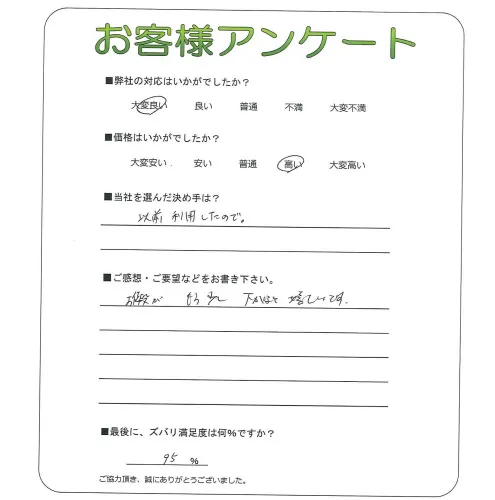 お客様アンケート
■弊社の対応はいかがでしたか？
大変良い 良い 普通 不満 大変不満
■価格はいかがでしたか？
大変安い． 安い 普通 高い 大変高い
■当社を選んだ決め手は？
以前利用したので。
■ご感想・ご要望などをお書き下さい。
お値段が もう少し 下がると 嬉しいです.
■最後に、ズバリ満足度は何%ですか？
95 %
ご協力頂き、誠にありがとうございました。